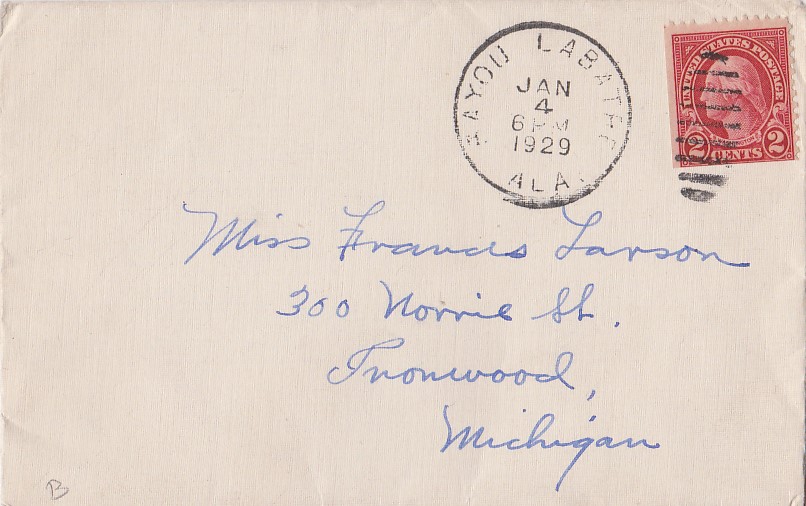 BAYOU LABATRE
JAN
4
6 PM
1929
ALA.
UNITED STATES POSTAGE
2 CENTS 2
Miss Francis Larson
300 Norrie St.
Ironwood,
Michigan
B